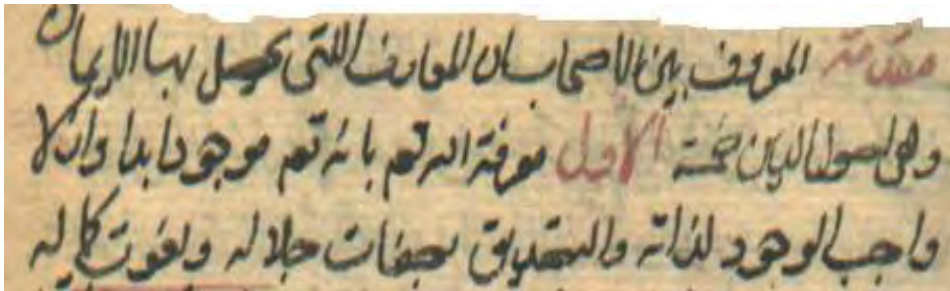 مقدمة المعروف بين الاصحاب ان المعارف اللتى يحصل بها الايمان
وهى اصول الدين خمسة الاول معرفة الله تعم بانه تعم موجود ابدا وازلا
واجب الوجود لذاته والتصديق بصفات جلاله ونعوت كماله